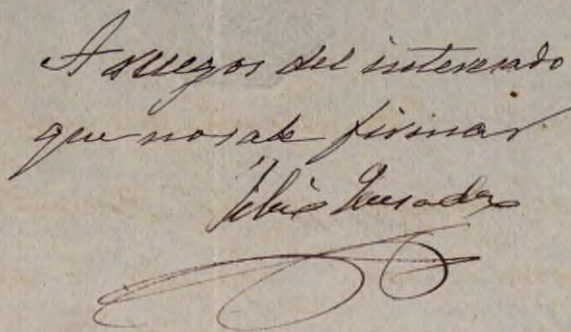 A ruegos del interesado
que no sabe firmar.
Quesada